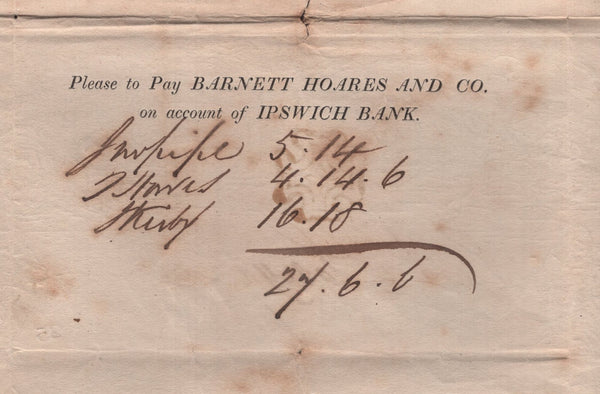 Please to Pay BARNETT HOARES AND CO.
on account of IPSWICH BANK.
5.14
4.14.6
Kirby 16.18
27.6.6